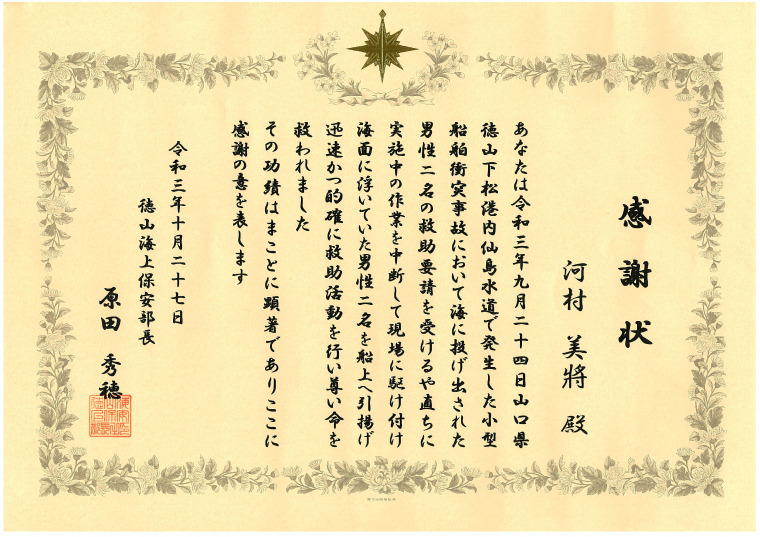 感謝状
河村 美將 殿
あなたは令和三年九月二十四日山口県
徳山下松港内仙島水道で発生した小型
船舶衝突事故において海に投げ出された
男性二名の救助要請を受けるや直ちに
実施中の作業を中断して現場に駆け付け
海面に浮いていた男性二名を船上へ引揚げ
迅速かつ的確に救助活動を行い尊い命を
救われました
その功績はまことに顕著でありここに
感謝の意を表します
令和三年十月二十七日
徳山海上保安部長
原田 秀穂